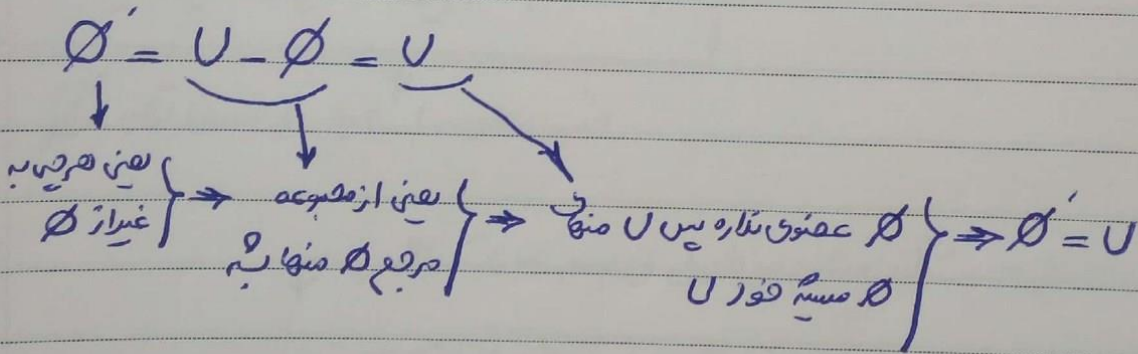 ∅′ = U − ∅ = U
یعنی هرچی به
غیر از ∅
یعنی از مجموعه
مرجع ∅ منها بشه
∅ عضوی نداره پس U منهای
∅ میشه خود U
∅′ = U